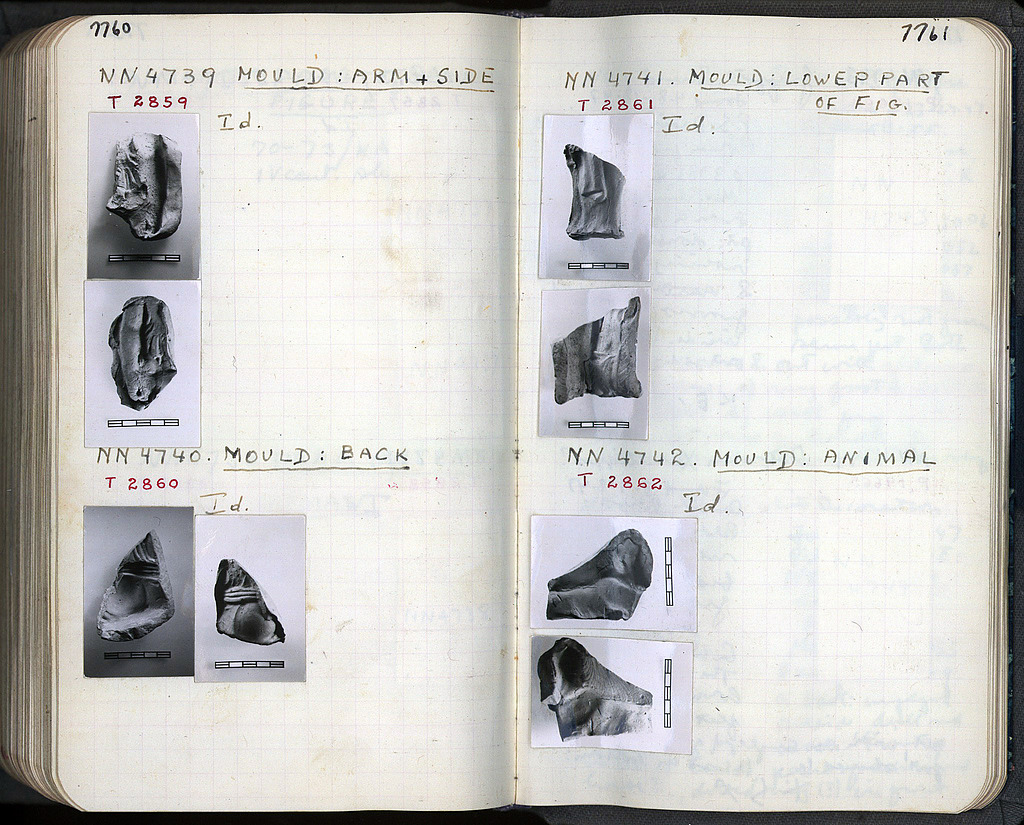 7760
NN 4739 MOULD: ARM + SIDE
T 2859
Id.
NN 4740. MOULD: BACK
T 2860
Id.
7761
NN 4741. MOULD: LOWER PART
OF FIG.
T 2861
Id.
NN 4742. MOULD: ANIMAL
T 2862
Id.